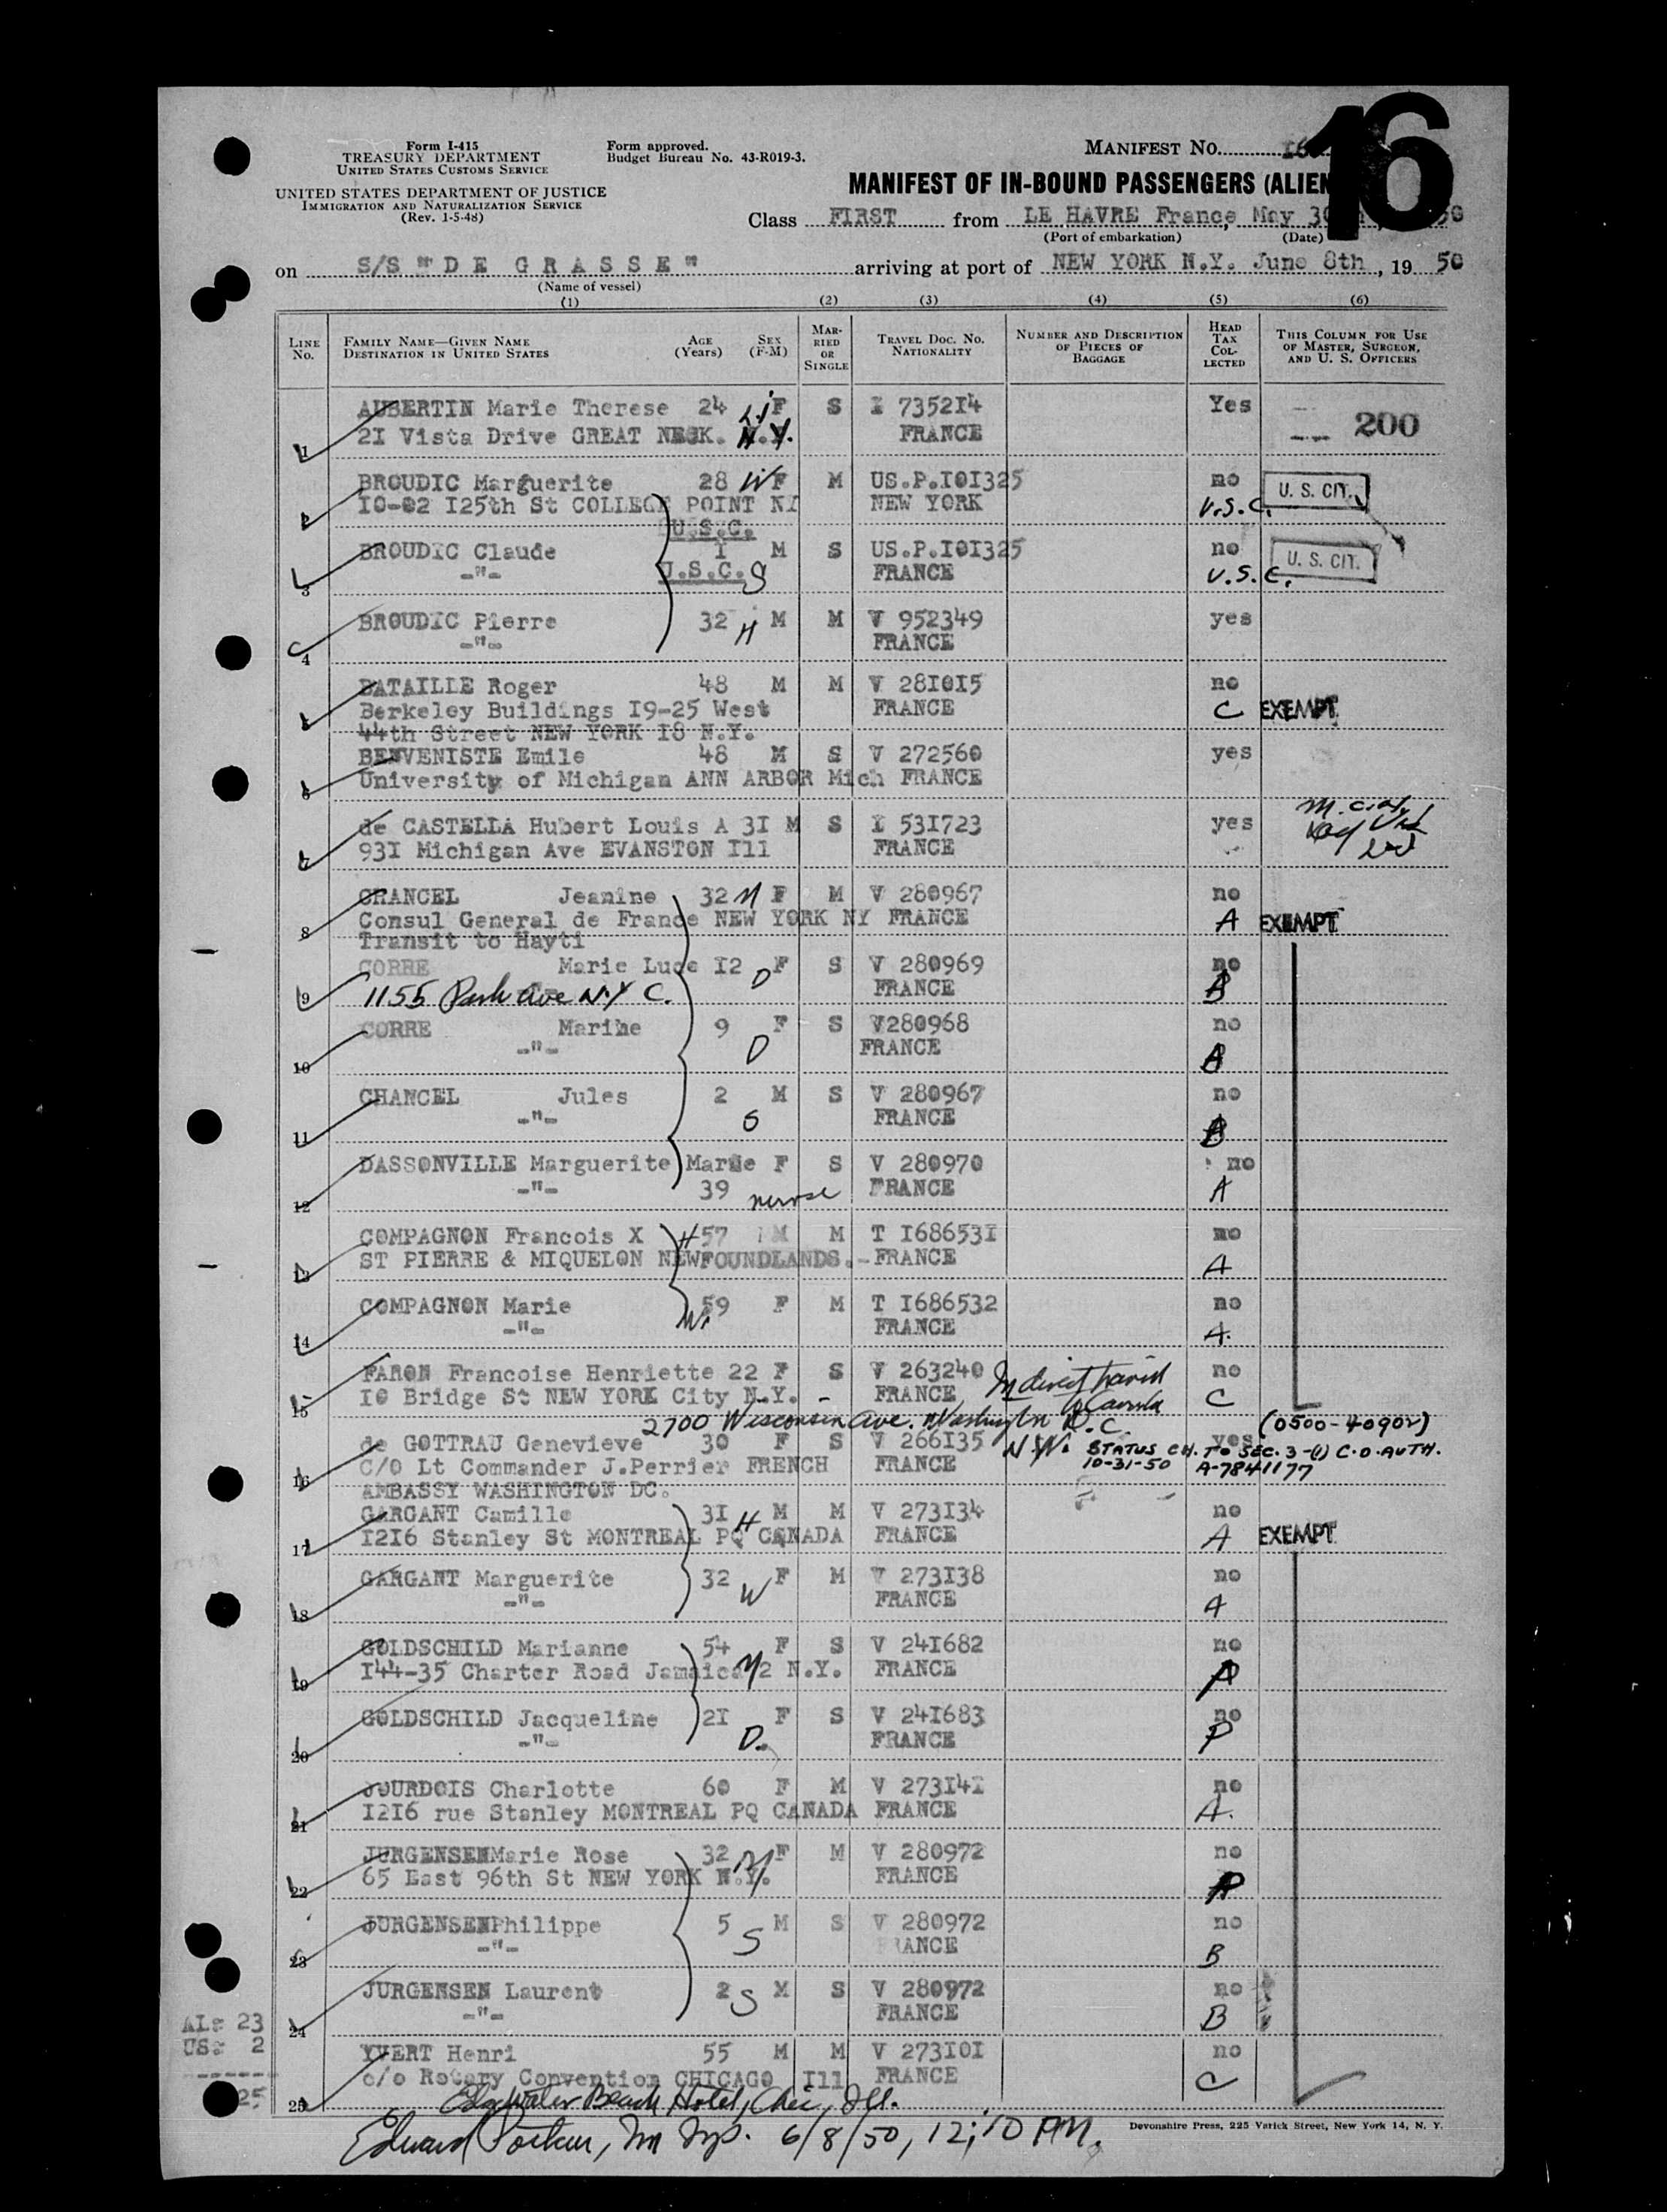 16
Form I-415
TREASURY DEPARTMENT
UNITED STATES CUSTOMS SERVICE
UNITED STATES DEPARTMENT OF JUSTICE
IMMIGRATION AND NATURALIZATION SERVICE
(Rev. 1-5-48)
Form approved.
Budget Bureau No. 43-R019-3.
MANIFEST NO. 16
MANIFEST OF IN-BOUND PASSENGERS (ALIEN
Class FIRST from LE HAVRE France, May 30 50
(Port of embarkation) (Date)
on S/S "D E G R A S S E" arriving at port of NEW YORK N.Y. June 8th, 19 50
(Name of vessel)
(1) (2) (3) (4) (5) (6)
LINE No. FAMILY NAME—GIVEN NAME DESTINATION IN UNITED STATES AGE (Years) SEX (F-M) MARRIED OR SINGLE TRAVEL DOC. NO. NATIONALITY NUMBER AND DESCRIPTION OF PIECES OF BAGGAGE HEAD TAX COLLECTED THIS COLUMN FOR USE OF MASTER, SURGEON, AND U. S. OFFICERS
AUBERTIN Marie Therese 24 F S I 735214 Yes
1 21 Vista Drive GREAT NECK. N.Y. FRANCE 200
BROUDIC Marguerite 28 W F M US.P.I01325 no U. S. CIT.
2 I0-02 I25th St COLLEGE POINT NY NEW YORK U.S.C.
U.S.C.
BROUDIC Claude I M S US.P.I01325 no U. S. CIT.
3 -"- U.S.C. S FRANCE U.S.C.
BROUDIC Pierre 32 H M M V 952349 yes
4 -"- FRANCE
BATAILLE Roger 48 M M V 281015 no
5 Berkeley Buildings I9-25 West FRANCE C EXEMPT
44th Street NEW YORK I8 N.Y.
BENVENISTE Emile 48 M S V 272560 yes
6 University of Michigan ANN ARBOR Mich FRANCE
de CASTELLA Hubert Louis A 3I M S I 531723 yes
7 931 Michigan Ave EVANSTON Ill FRANCE
CHANCEL Jeanine 32 M F M V 280967 no
8 Consul General de France NEW YORK NY FRANCE A EXEMPT
Transit to Hayti
CORRE Marie Luce I2 D F S V 280969 no
9 1155 Park Ave N.Y C. FRANCE B
CORRE Marine 9 F S V280968 no
10 -"- D FRANCE B
CHANCEL Jules 2 M S V 280967 no
11 -"- S FRANCE B
DASSONVILLE Marguerite Marie F S V 280970 no
12 -"- 39 nurse FRANCE A
COMPAGNON Francois X H 57 M M T I686531 no
13 ST PIERRE & MIQUELON NEWFOUNDLANDS.- FRANCE A
COMPAGNON Marie W. 59 F M T I686532 no
14 -"- FRANCE A.
FARON Francoise Henriette 22 F S V 263240 Indirect transit no
15 I0 Bridge St NEW YORK City N.Y. - FRANCE to Canada C
2700 Wisconsin Ave. Washington D.C. (0500-40902)
de GOTTRAU Genevieve 30 F S V 266135 N.W. yes STATUS CH. TO SEC. 3-(1) C.O. AUTH.
16 C/O Lt Commander J.Perrier FRENCH FRANCE 10-31-50 A-7841177
AMBASSY WASHINGTON DC.
GARGANT Camille 3I H M M V 273134 no
17 I216 Stanley St MONTREAL PQ CANADA FRANCE A EXEMPT
GARGANT Marguerite 32 W F M V 273138 no
18 -"- FRANCE A
GOLDSCHILD Marianne 54 F S V 241682 no
19 I44-35 Charter Road Jamaica 2 N.Y. FRANCE A
GOLDSCHILD Jacqueline 2I F S V 241683 no
20 -"- D. FRANCE P
JOURDOIS Charlotte 60 F M V 273141 no
21 I216 rue Stanley MONTREAL PQ CANADA FRANCE A.
JURGENSEN Marie Rose 32 M F M V 280972 no
22 65 East 96th St NEW YORK N.Y. FRANCE
JURGENSEN Philippe 5 M S V 280972 no
23 -"- S FRANCE B
JURGENSEN Laurent 2 S M S V 280972 no
24 -"- FRANCE B
AL: 23
US: 2
------
25
YVERT Henri 55 M M V 273101 no
25 c/o Rotary Convention CHICAGO Ill FRANCE C
Edgewater Beach Hotel, Chic, Ill.
Edward Im Insp. 6/8/50, 12:10 PM.
Devonshire Press, 225 Varick Street, New York 14, N. Y.